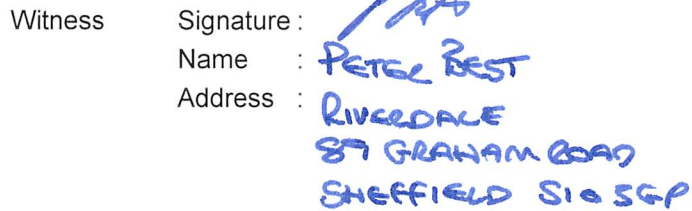 Witness Signature :
Name : PETER BEST
Address : RIVERDALE
89 GRAHAM ROAD
SHEFFIELD S10 3GP